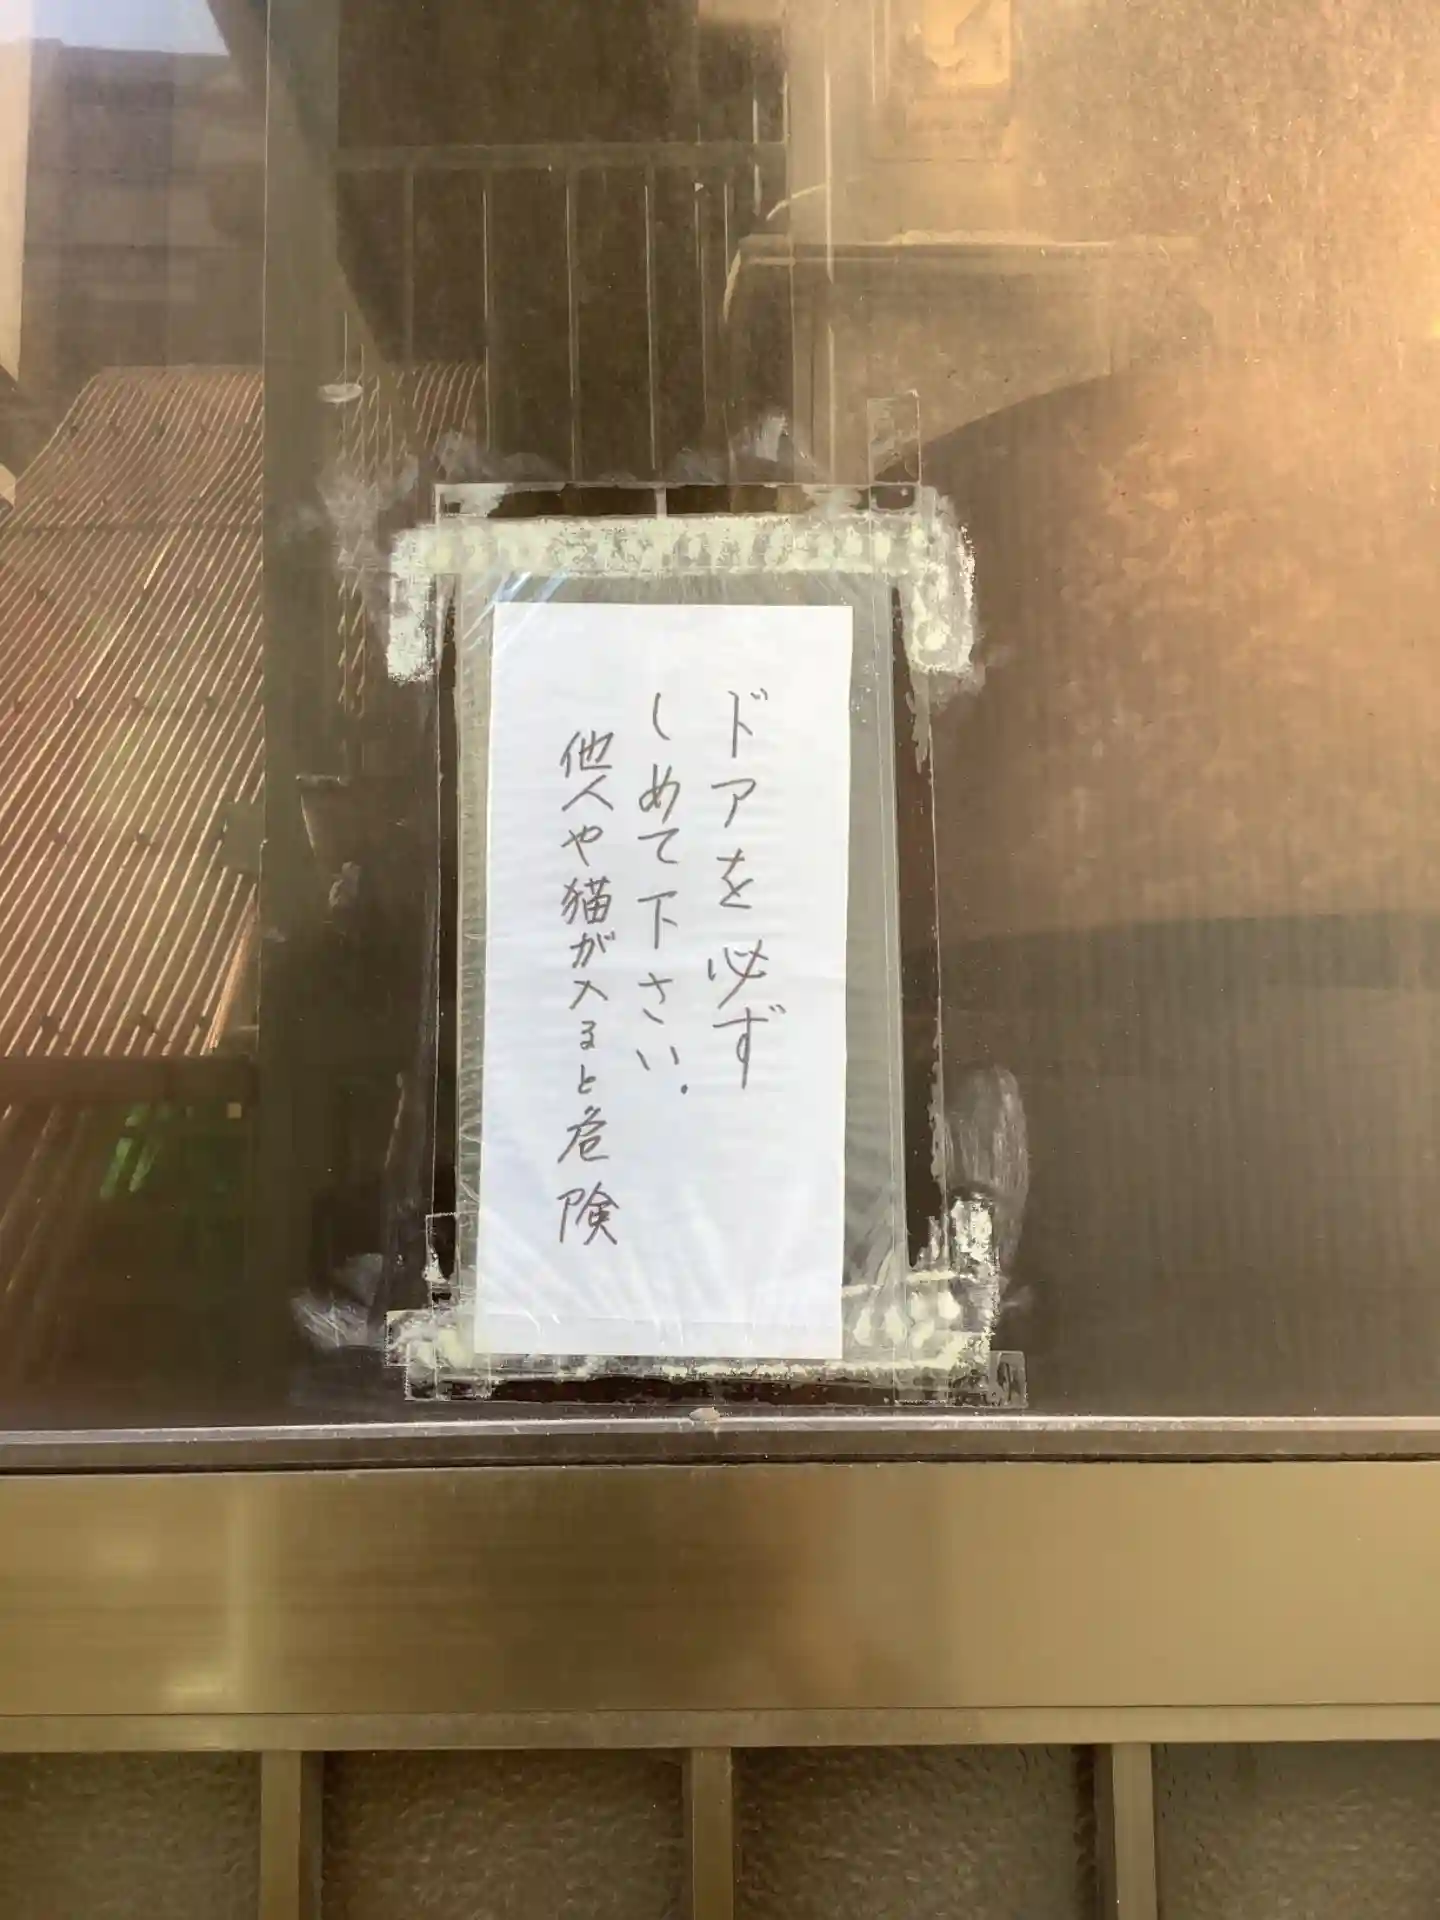 ドアを必ず
しめて下さい.
他人や猫が入ると危険